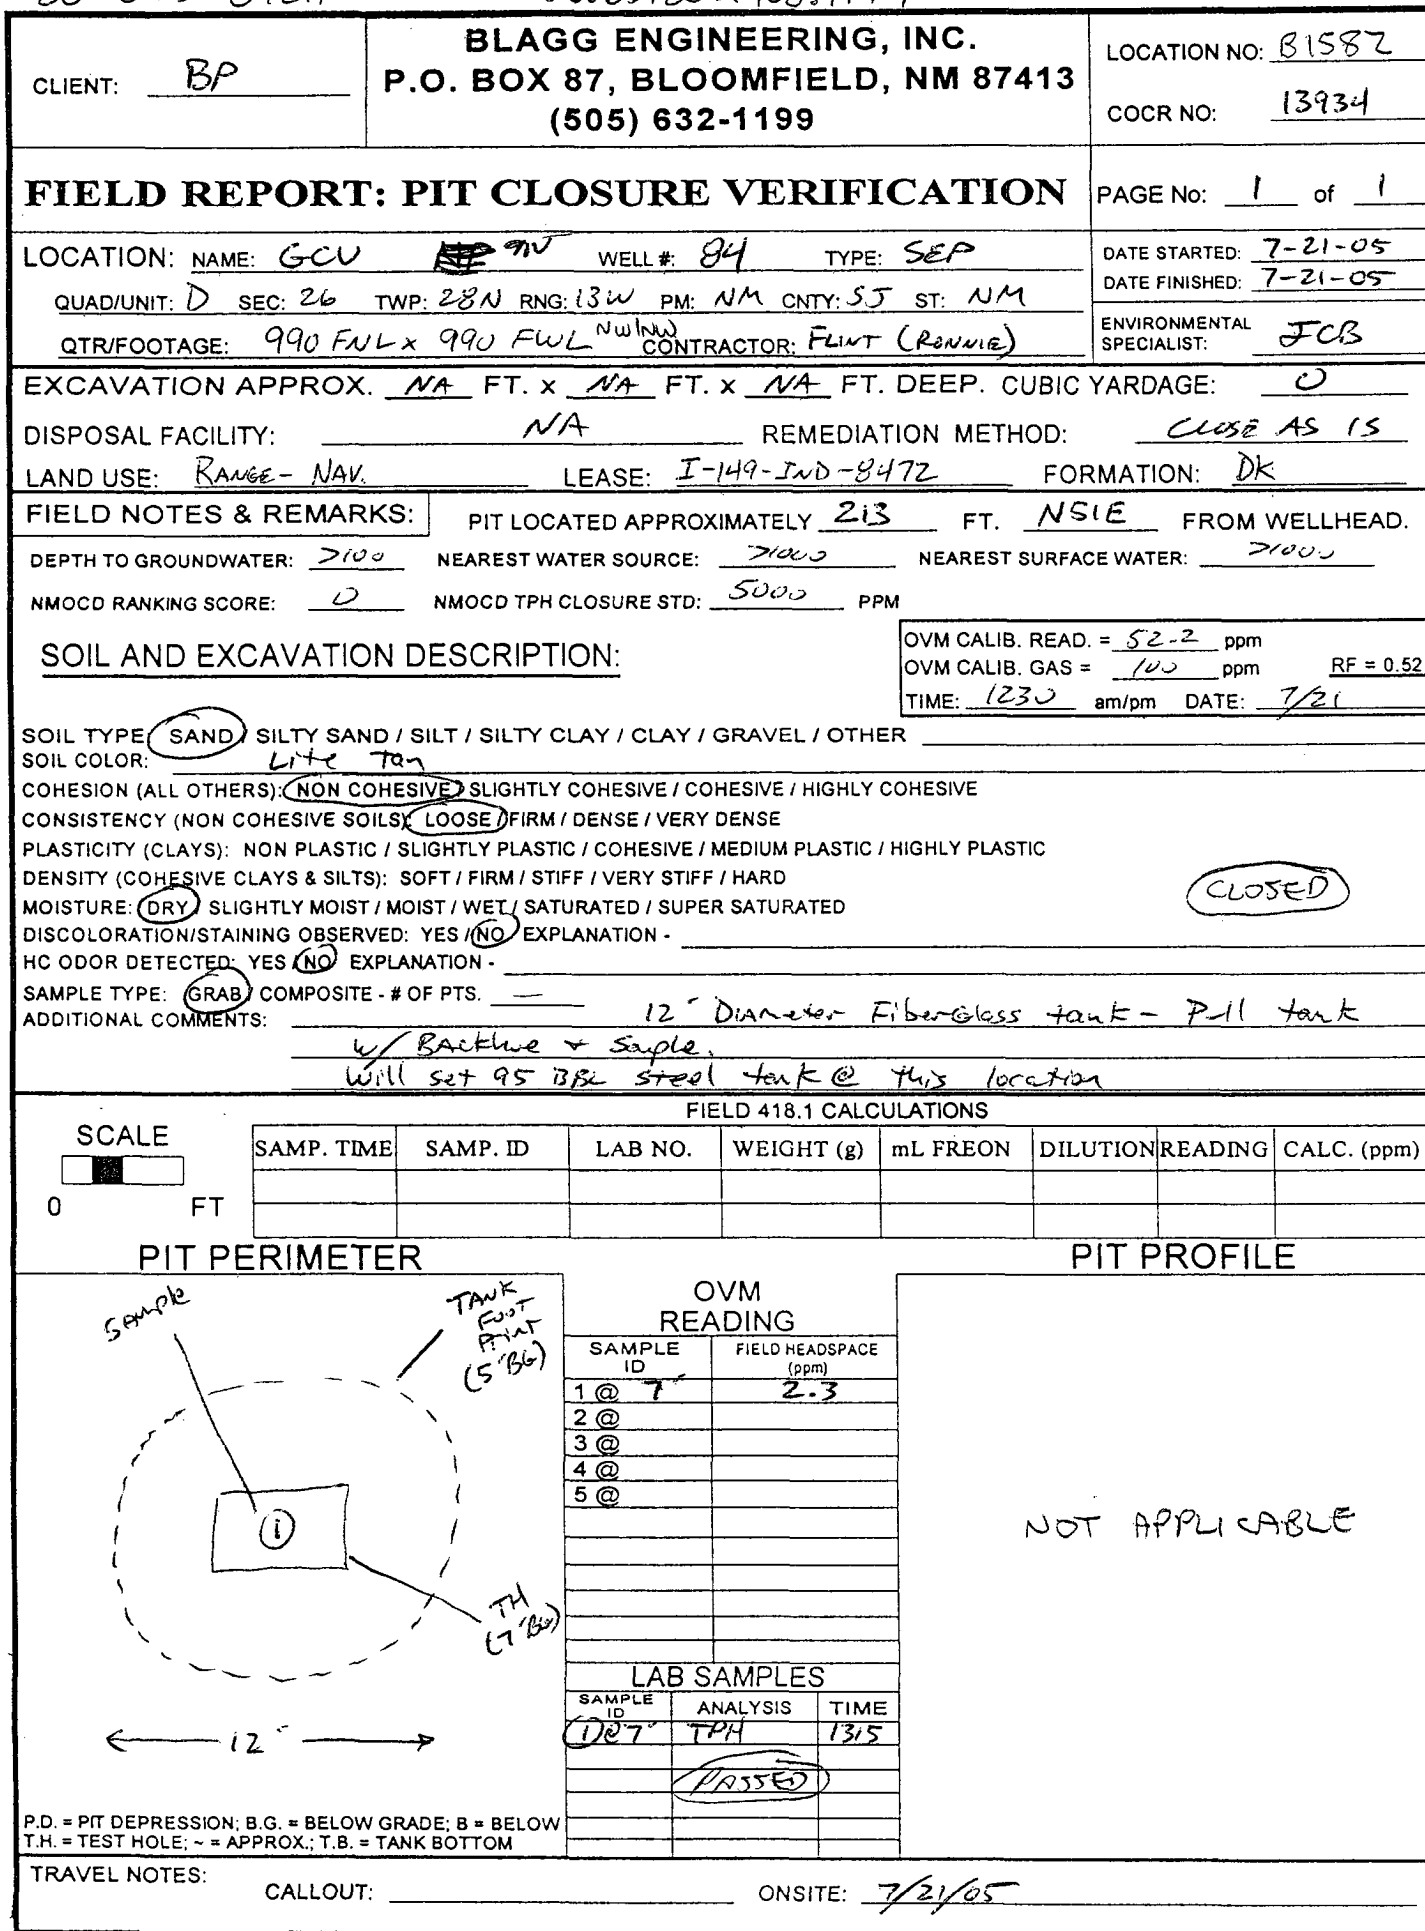 BLAGG ENGINEERING, INC.
P.O. BOX 87, BLOOMFIELD, NM 87413
(505) 632-1199
CLIENT: BP
LOCATION NO: B1582
COCR NO: 13934
FIELD REPORT: PIT CLOSURE VERIFICATION
PAGE No: 1 of 1
LOCATION: NAME: GCU WELL #: 84 TYPE: SEP
DATE STARTED: 7-21-05
DATE FINISHED: 7-21-05
QUAD/UNIT: D SEC: 26 TWP: 28N RNG: 13W PM: NM CNTY: SJ ST: NM
QTR/FOOTAGE: 990 FNL x 990 FWL NW/NW CONTRACTOR: FLINT (RONNIE)
ENVIRONMENTAL SPECIALIST: JCB
EXCAVATION APPROX. NA FT. x NA FT. x NA FT. DEEP. CUBIC YARDAGE: 0
DISPOSAL FACILITY: NA REMEDIATION METHOD: CLOSE AS IS
LAND USE: RANGE - NAV. LEASE: I-149-IND-8472 FORMATION: DK
FIELD NOTES & REMARKS: PIT LOCATED APPROXIMATELY 213 FT. FROM WELLHEAD.
DEPTH TO GROUNDWATER: >100 NEAREST WATER SOURCE: >1000 NEAREST SURFACE WATER: >1000
NMOCD RANKING SCORE: 0 NMOCD TPH CLOSURE STD: 5000 PPM
SOIL AND EXCAVATION DESCRIPTION:
OVM CALIB. READ. = 52.2 ppm
OVM CALIB. GAS = 100 ppm RF = 0.52
TIME: 1230 am/pm DATE: 7/21
SOIL TYPE: SAND / SILTY SAND / SILT / SILTY CLAY / CLAY / GRAVEL / OTHER
SOIL COLOR: Lite Tan
COHESION (ALL OTHERS): NON COHESIVE / SLIGHTLY COHESIVE / COHESIVE / HIGHLY COHESIVE
CONSISTENCY (NON COHESIVE SOILS): LOOSE / FIRM / DENSE / VERY DENSE
PLASTICITY (CLAYS): NON PLASTIC / SLIGHTLY PLASTIC / COHESIVE / MEDIUM PLASTIC / HIGHLY PLASTIC
DENSITY (COHESIVE CLAYS & SILTS): SOFT / FIRM / STIFF / VERY STIFF / HARD
CLOSED
MOISTURE: DRY / SLIGHTLY MOIST / MOIST / WET / SATURATED / SUPER SATURATED
DISCOLORATION/STAINING OBSERVED: YES / NO EXPLANATION -
HC ODOR DETECTED: YES / NO EXPLANATION -
SAMPLE TYPE: GRAB / COMPOSITE - # OF PTS. —
ADDITIONAL COMMENTS: 12' Diameter FiberGlass tank - Pull tank
w/ Backhoe + Sample.
Will set 95 BBL steel tank @ this location
FIELD 418.1 CALCULATIONS
SCALE
0 FT
SAMP. TIME SAMP. ID LAB NO. WEIGHT (g) mL FREON DILUTION READING CALC. (ppm)
PIT PERIMETER
PIT PROFILE
SAMPLE
TANK
FOOT
PRINT
(5' BG)
1
TH
(7' BG)
12'
OVM
READING
SAMPLE ID FIELD HEADSPACE (ppm)
1 @ 7' 2.3
2 @
3 @
4 @
5 @
NOT APPLICABLE
LAB SAMPLES
SAMPLE ID ANALYSIS TIME
1@7' TPH 1315
PASSED
P.D. = PIT DEPRESSION; B.G. = BELOW GRADE; B = BELOW
T.H. = TEST HOLE; ~ = APPROX.; T.B. = TANK BOTTOM
TRAVEL NOTES: CALLOUT: ONSITE: 7/21/05